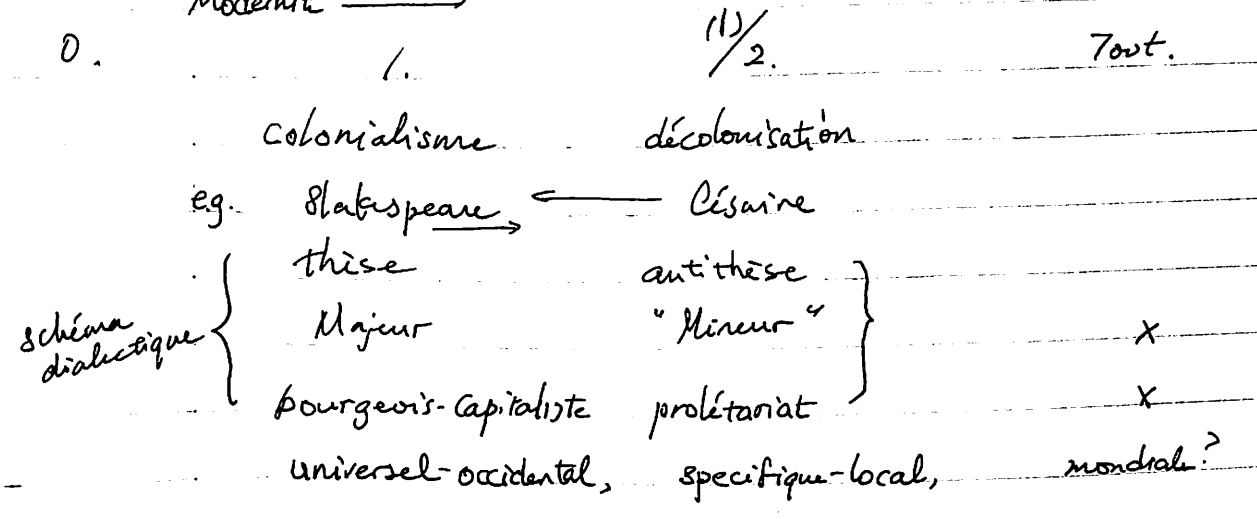 Modernité →
0. 1. (1)/2. Tout.
colonialisme décolonisation
e.g. Shakespeare ← Césaire
thèse antithèse
schéma dialectique Majeur "Mineur" X
bourgeois-capitaliste prolétariat X
universel-occidental, specifique-local, mondiale?